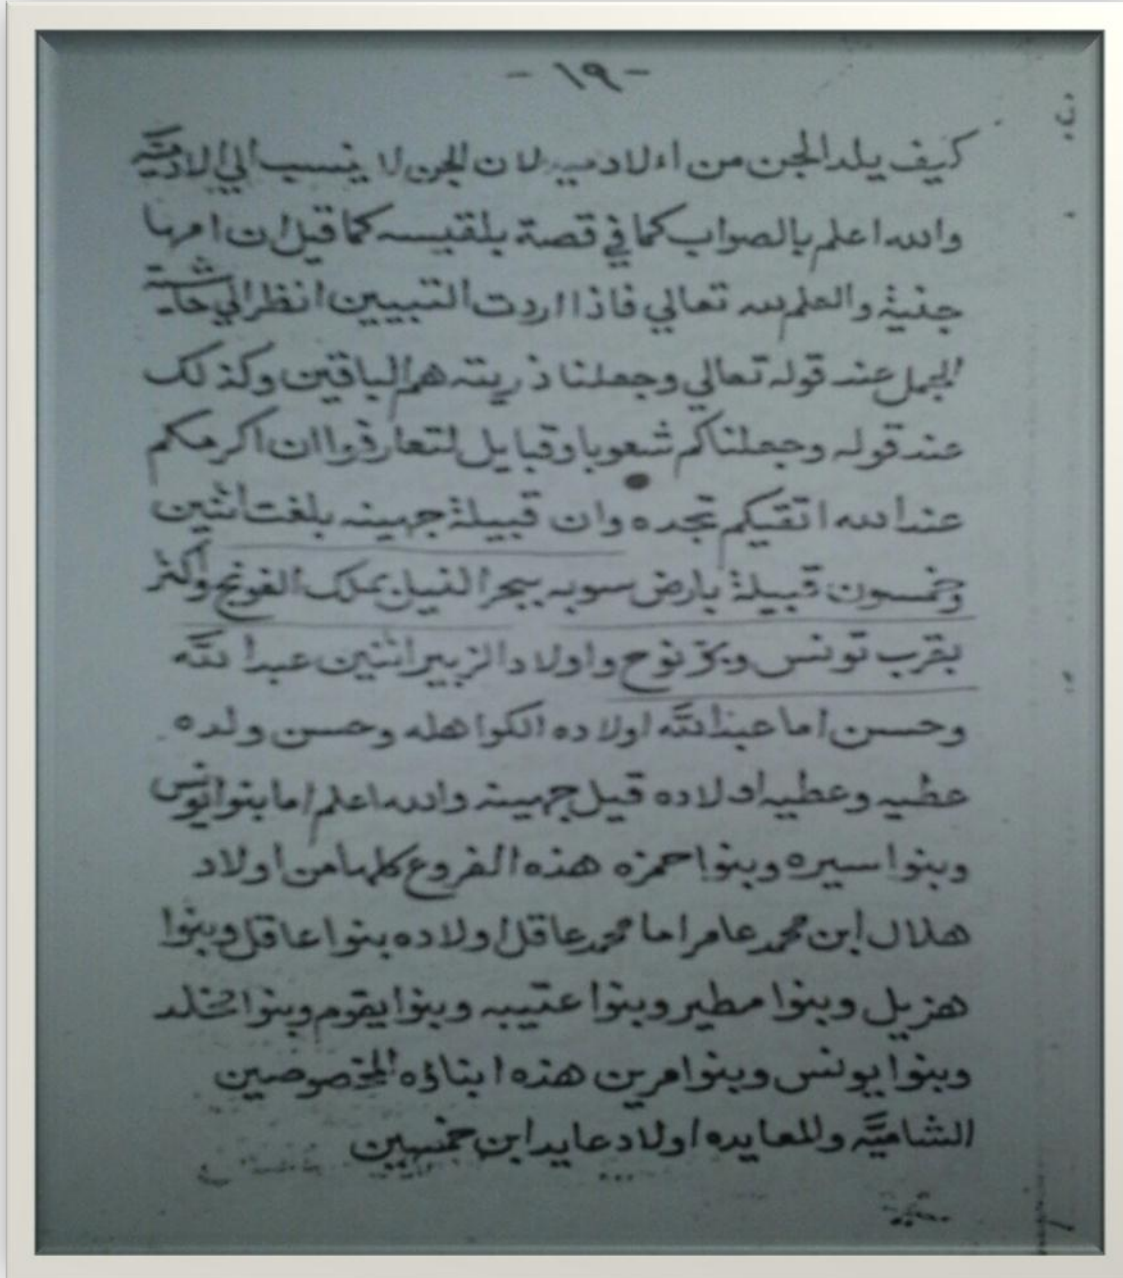 - ١٩ -
كيف يلد الجن من اولاد لان الجن لا ينسب الي الادميّه
والله اعلم بالصواب كما في قصة بلقيسه كما قيل ان امها
جنية والعلم لله تعالي فاذا اردت التبيين انظر الي حاشية
الجمل عند قوله تعالي وجعلنا ذريته هم الباقين وكذلك
عند قوله وجعلناكم شعوبا وقبايل لتعارفوا ان اكرمكم
عند الله اتقيكم تجده وان قبيلة جهينه بلغت اثنين
وخمسون قبيلة بارض سوبه ببحر النيل بملك الفونج واكثر
بقرب تونس نوح واولاد الزبير اثنين عبد اللّه
وحسن اما عبد اللّه اولاده الكواهله وحسن ولده
عطيه وعطيه اولاده قيل جهينه والله اعلم اما بنوا يونس
وبنوا سيره وبنوا حمزه هذه الفروع كلها من اولاد
هلال ابن محمد عامر اما محمد عاقل اولاده بنوا عاقل وبنوا
هزيل وبنوا مطير وبنوا عتيبه وبنوا يقوم وبنوا مخلد
وبنوا يونس وبنوا مرين هذه ابناؤه المخصوصين
الشاميّه والمعايده اولاد عايد ابن